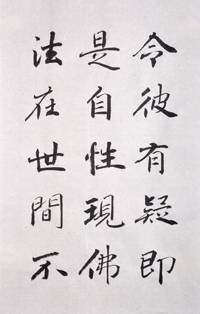 令彼有疑即
是自性現佛
法在世間不